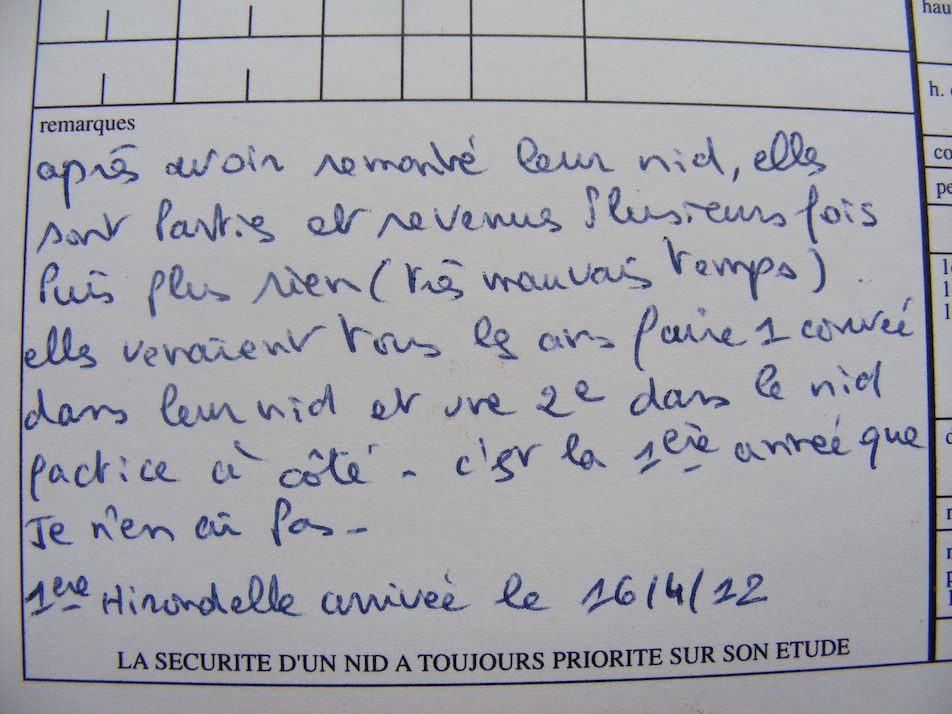 hau
h.
co
pe
remarques
après avoir remonté leur nid, elles
sont parties et revenus plusieurs fois
Puis plus rien (très mauvais temps)
elles venaient tous les ans faire 1 couvée
dans leur nid et une 2e dans le nid
factice à côté - c'est la 1ère année que
Je n'en ai pas -
1ère Hirondelle arrivée le 16/4/12
LA SECURITE D'UN NID A TOUJOURS PRIORITE SUR SON ETUDE